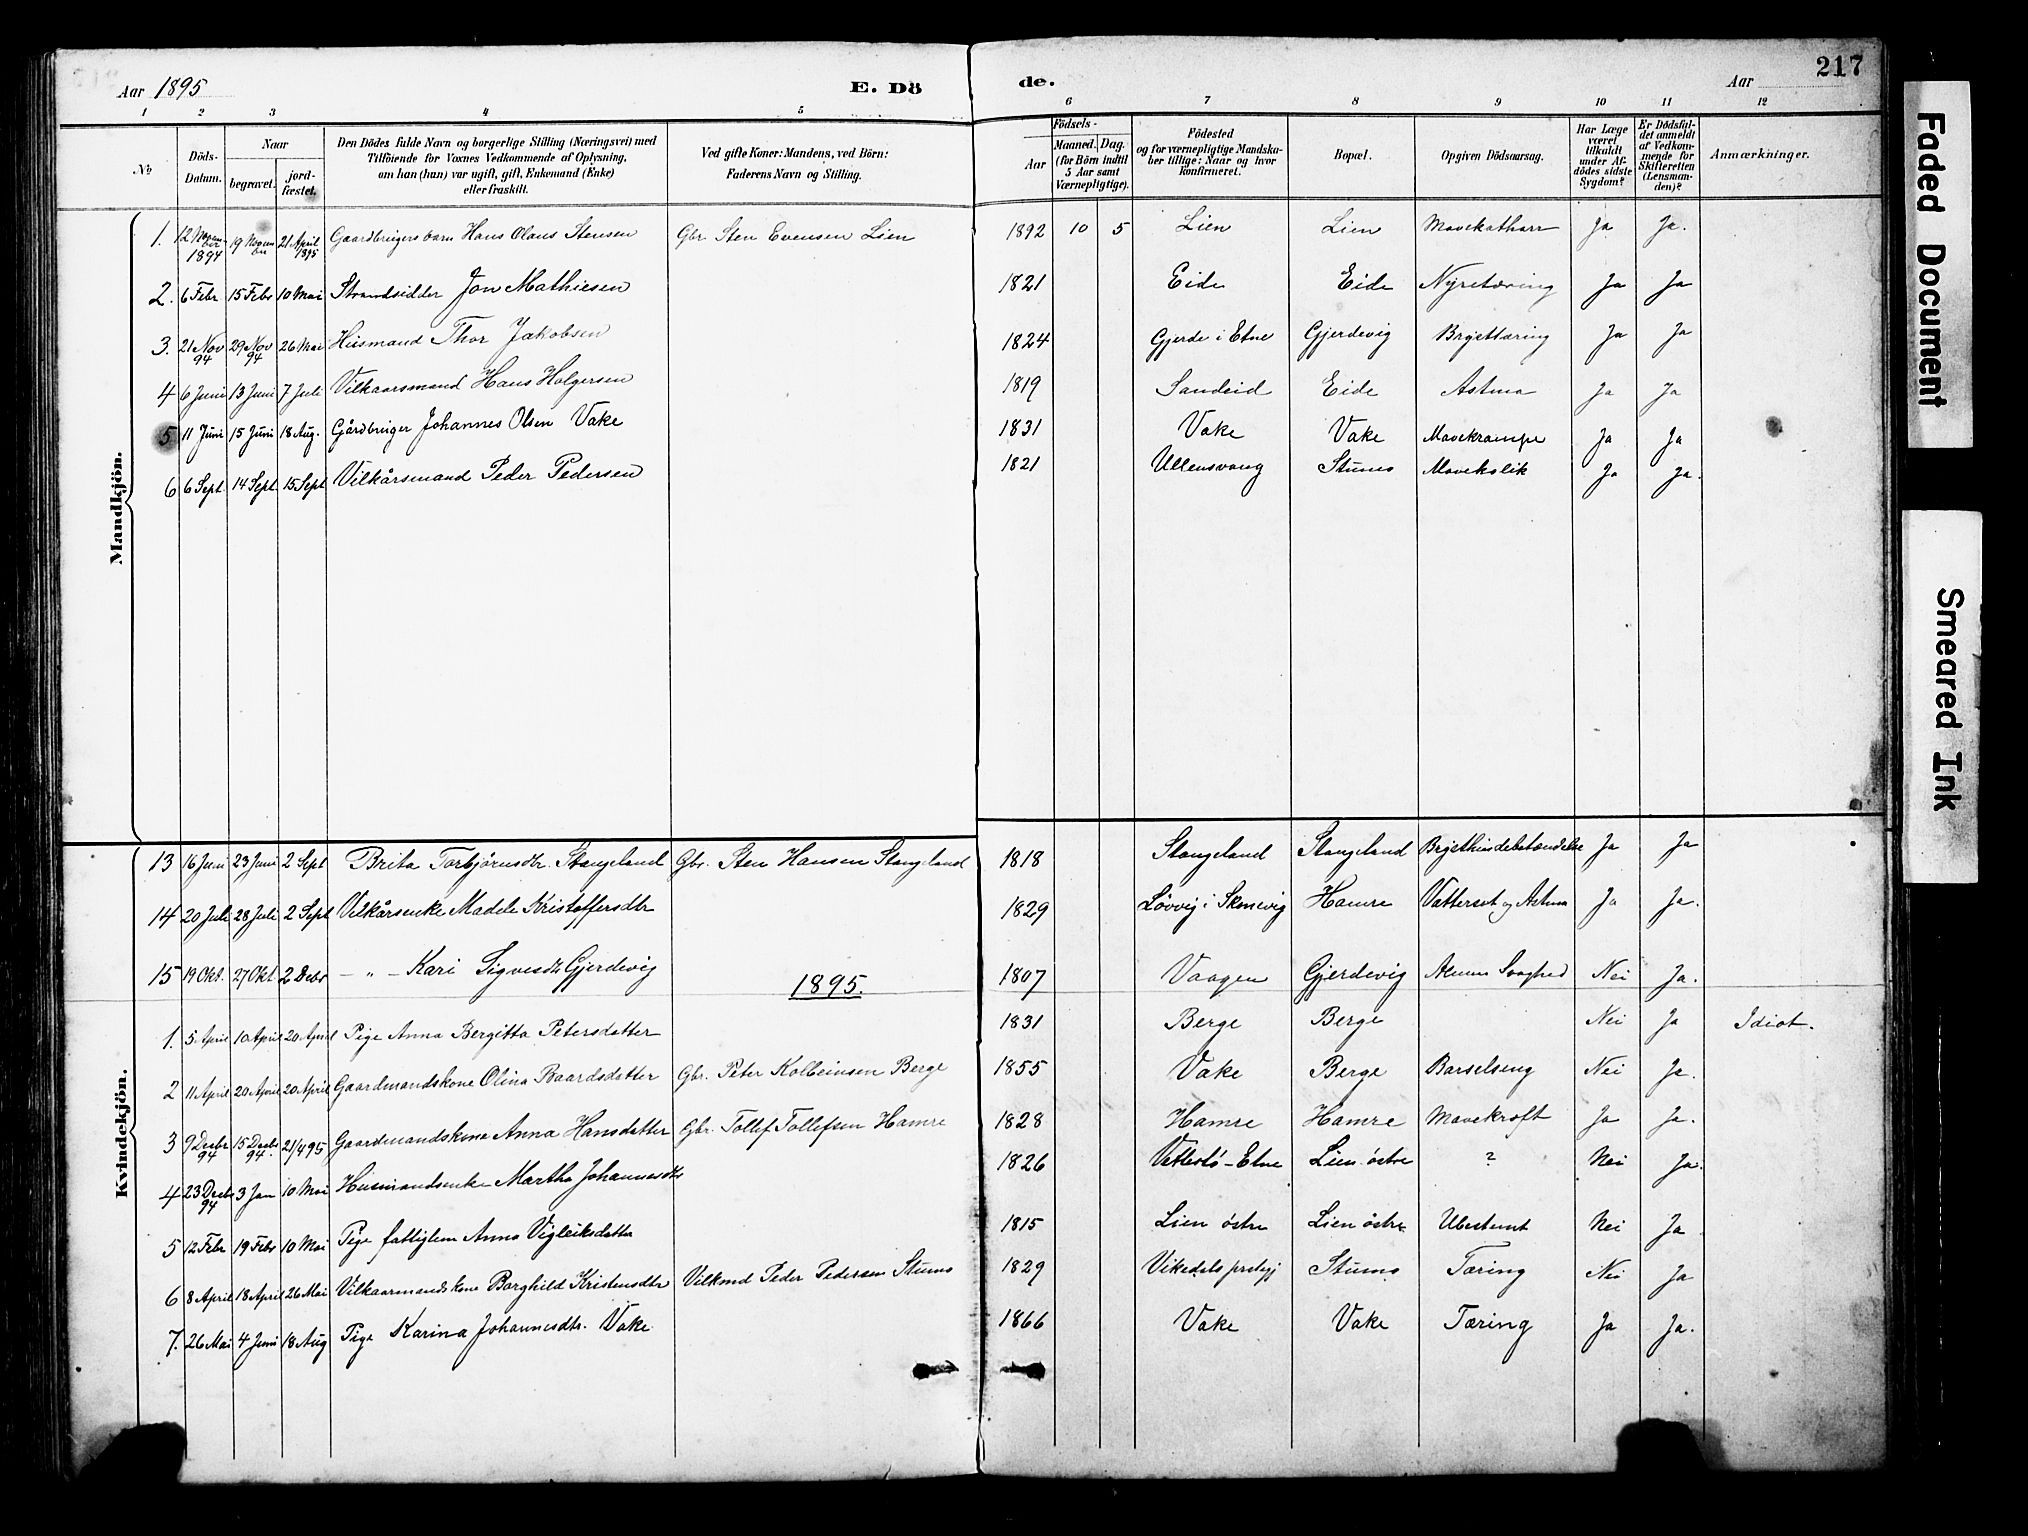 Aar 1895 E. Dö de. Aar 217
1 2 3 4 5 6 7 8 9 10 11 12
No Döds-Datum. Naar begravet. jordfæstet. Den Dödes fulde Navn og borgerlige Stilling (Næringsvei) med Tilföiende for Voxnes Vedkommende af Oplysning, om han (hun) var ugift, gift, Enkemand (Enke) eller fraskilt. Ved gifte Koner: Mandens, ved Börn: Faderens Navn og Stilling. Födsels- Aar Maaned. Dag. (for Börn indtil 5 Aar samt Værnepligtige). Födested og for værnepligtige Mandskaber tillige: Naar og hvor konfirmeret. Bopæl. Opgiven Dödsaarsag. Har Læge været tilkaldt under Afdödes sidste Sygdom? Er Dödsfaldet anmeldt af Vedkommende for Skifteretten (Lensmanden)? Anmærkninger.
Mandkjön.
1. 12 November 1894 19 November 21 April 1895 Gaardbrugers barn Hans Olaus Stensen Gbr Sten Evensen Lien 1892 10 5 Lien Lien Mavekatharr Ja Ja.
2. 6 Febr 15 Febr 10 Mai Strandsidder Jon Mathiesen 1821 Eide Eide Nyretæring Ja Ja
3. 21 Nov 94 29 Nov 94 26 Mai Husmand Thor Jakobsen 1824 Gjerde i Etne Gjerdevig Brysttæring Ja Ja
4 6 Juni 13 Juni 7 Juli Vilkaarsmand Hans Holgersen 1819 Sandeid Eide Astma Ja Ja
5 11 Juni 15 Juni 18 Aug. Gårdbruger Johannes Olsen Vake 1831 Vake Vake Mavekrampe Ja Ja
6 6 Sept. 14 Sept. 15 Sept Vilkårsmand Peder Pedersen 1821 Ullensvang Stumo Mavekolik Ja Ja.
Kvindekjön.
13 16 Juni 23 Juni 2 Sept Brita Torbjørnsdtr. Stangeland Gbr. Sten Hansen Stangeland 1818 Stangeland Stangeland Brysthindebetændelse Ja Ja
14 20 Juli 28 Juli 2 Sept Vilkårsenke Madele Kristoffersdtr 1829 Løvvig i Skonevig Hamre Vattersot og Astma Ja Ja.
15 19 Okt. 27 Okt 2 Debr — " — Kari Sigvesdtr Gjerdevig 1807 Vaagen Gjerdevig Almen Svaghed Nei Ja.
1895.
1. 5 April 10 April 20 April Pige Anna Bergitta Petersdatter 1831 Berge Berge Nei Ja Idiot.
2 11 April 20 April 20 April Gaardmandskone Olina Baardsdatter Gbr. Peter Kolbeinsen Berge 1855 Vake Berge Barselseng Nei Ja.
3 9 Decbr 94 15 Decbr 94. 21/4 95 Gaardmandskone Anna Hansdatter Gbr. Tollef Tollefsen Hamre 1828 Hamre Hamre Mavekræft Ja Ja.
4 23 Decbr 94 3 Jan 10 Mai Husmandsenke Martha Johannesdtr 1826 Vettestø - Etne Lien østre ? Nei Ja.
5 12 Febr 19 Febr 10 Mai Pige fattiglem Anna Vigleiksdatter 1815 Lien østre Lien østre Ubestemt Nei Ja
6 8 April 18 April 26 Mai Vilkaarmandskone Borghild Kristensdtr Vilkmd Peder Pedersen Stumo 1829 Vikedals prstgj Stumo Tæring Nei Ja
7. 26 Mai 4 Juni 18 Aug Pige Karina Johannesdtr. Vake 1866 Vake Vake Tæring Ja Ja.
Faded Document
Smeared Ink